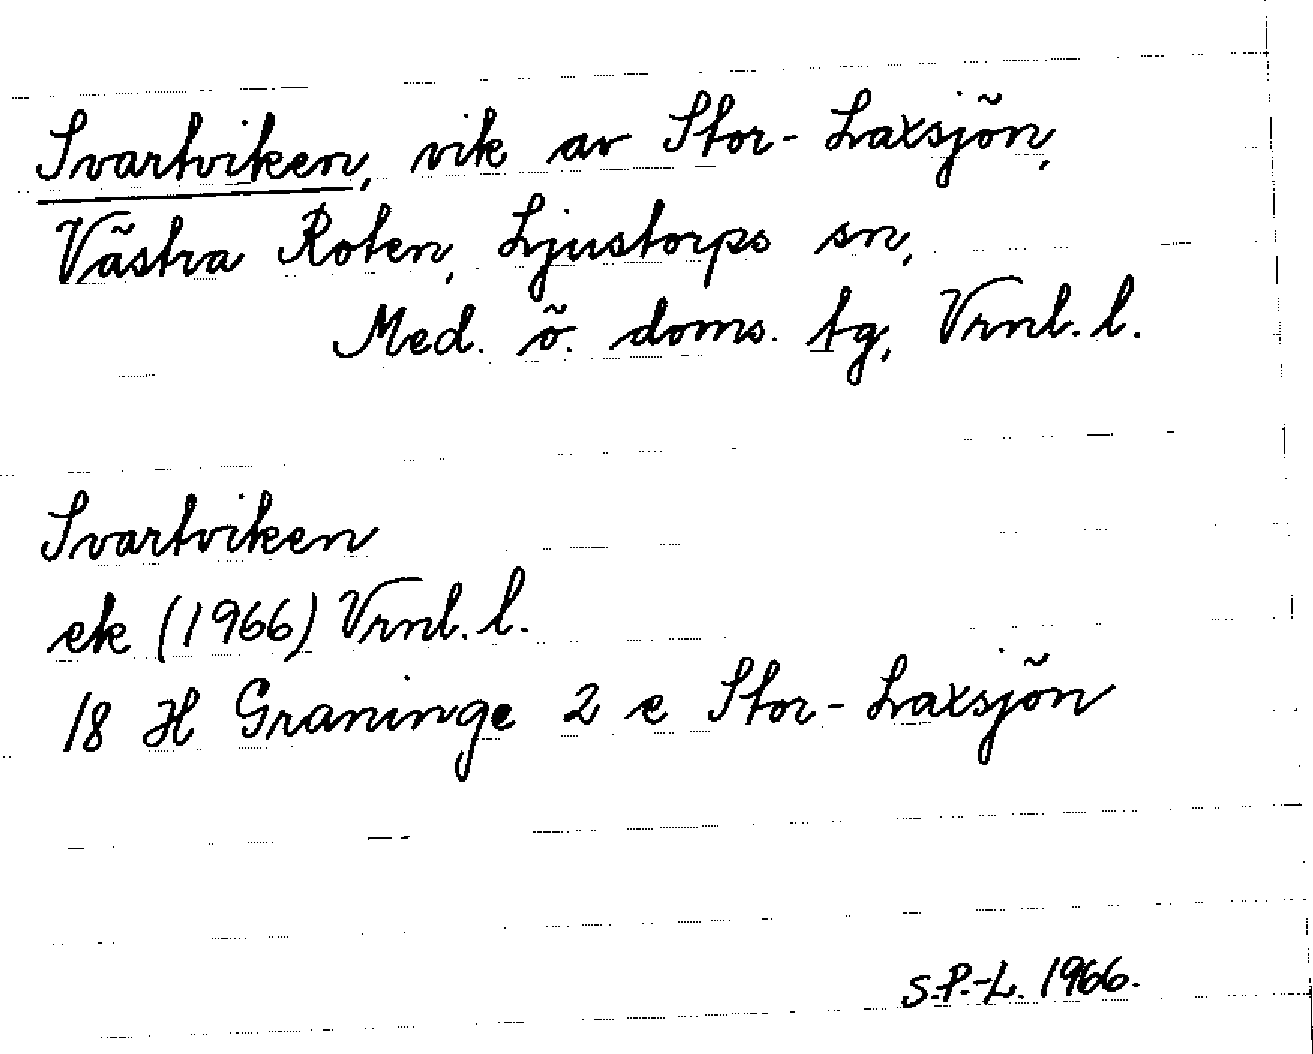 Svartviken, vik av Stor-Laxsjön,
Västra Roten, Ljustorps sn,
Med. ö. doms. tg, Vrnl. l.
Svartviken
ek (1966) Vrnl. l.
18 H Graninge 2 e Stor-Laxsjön
S.P.-L. 1966.